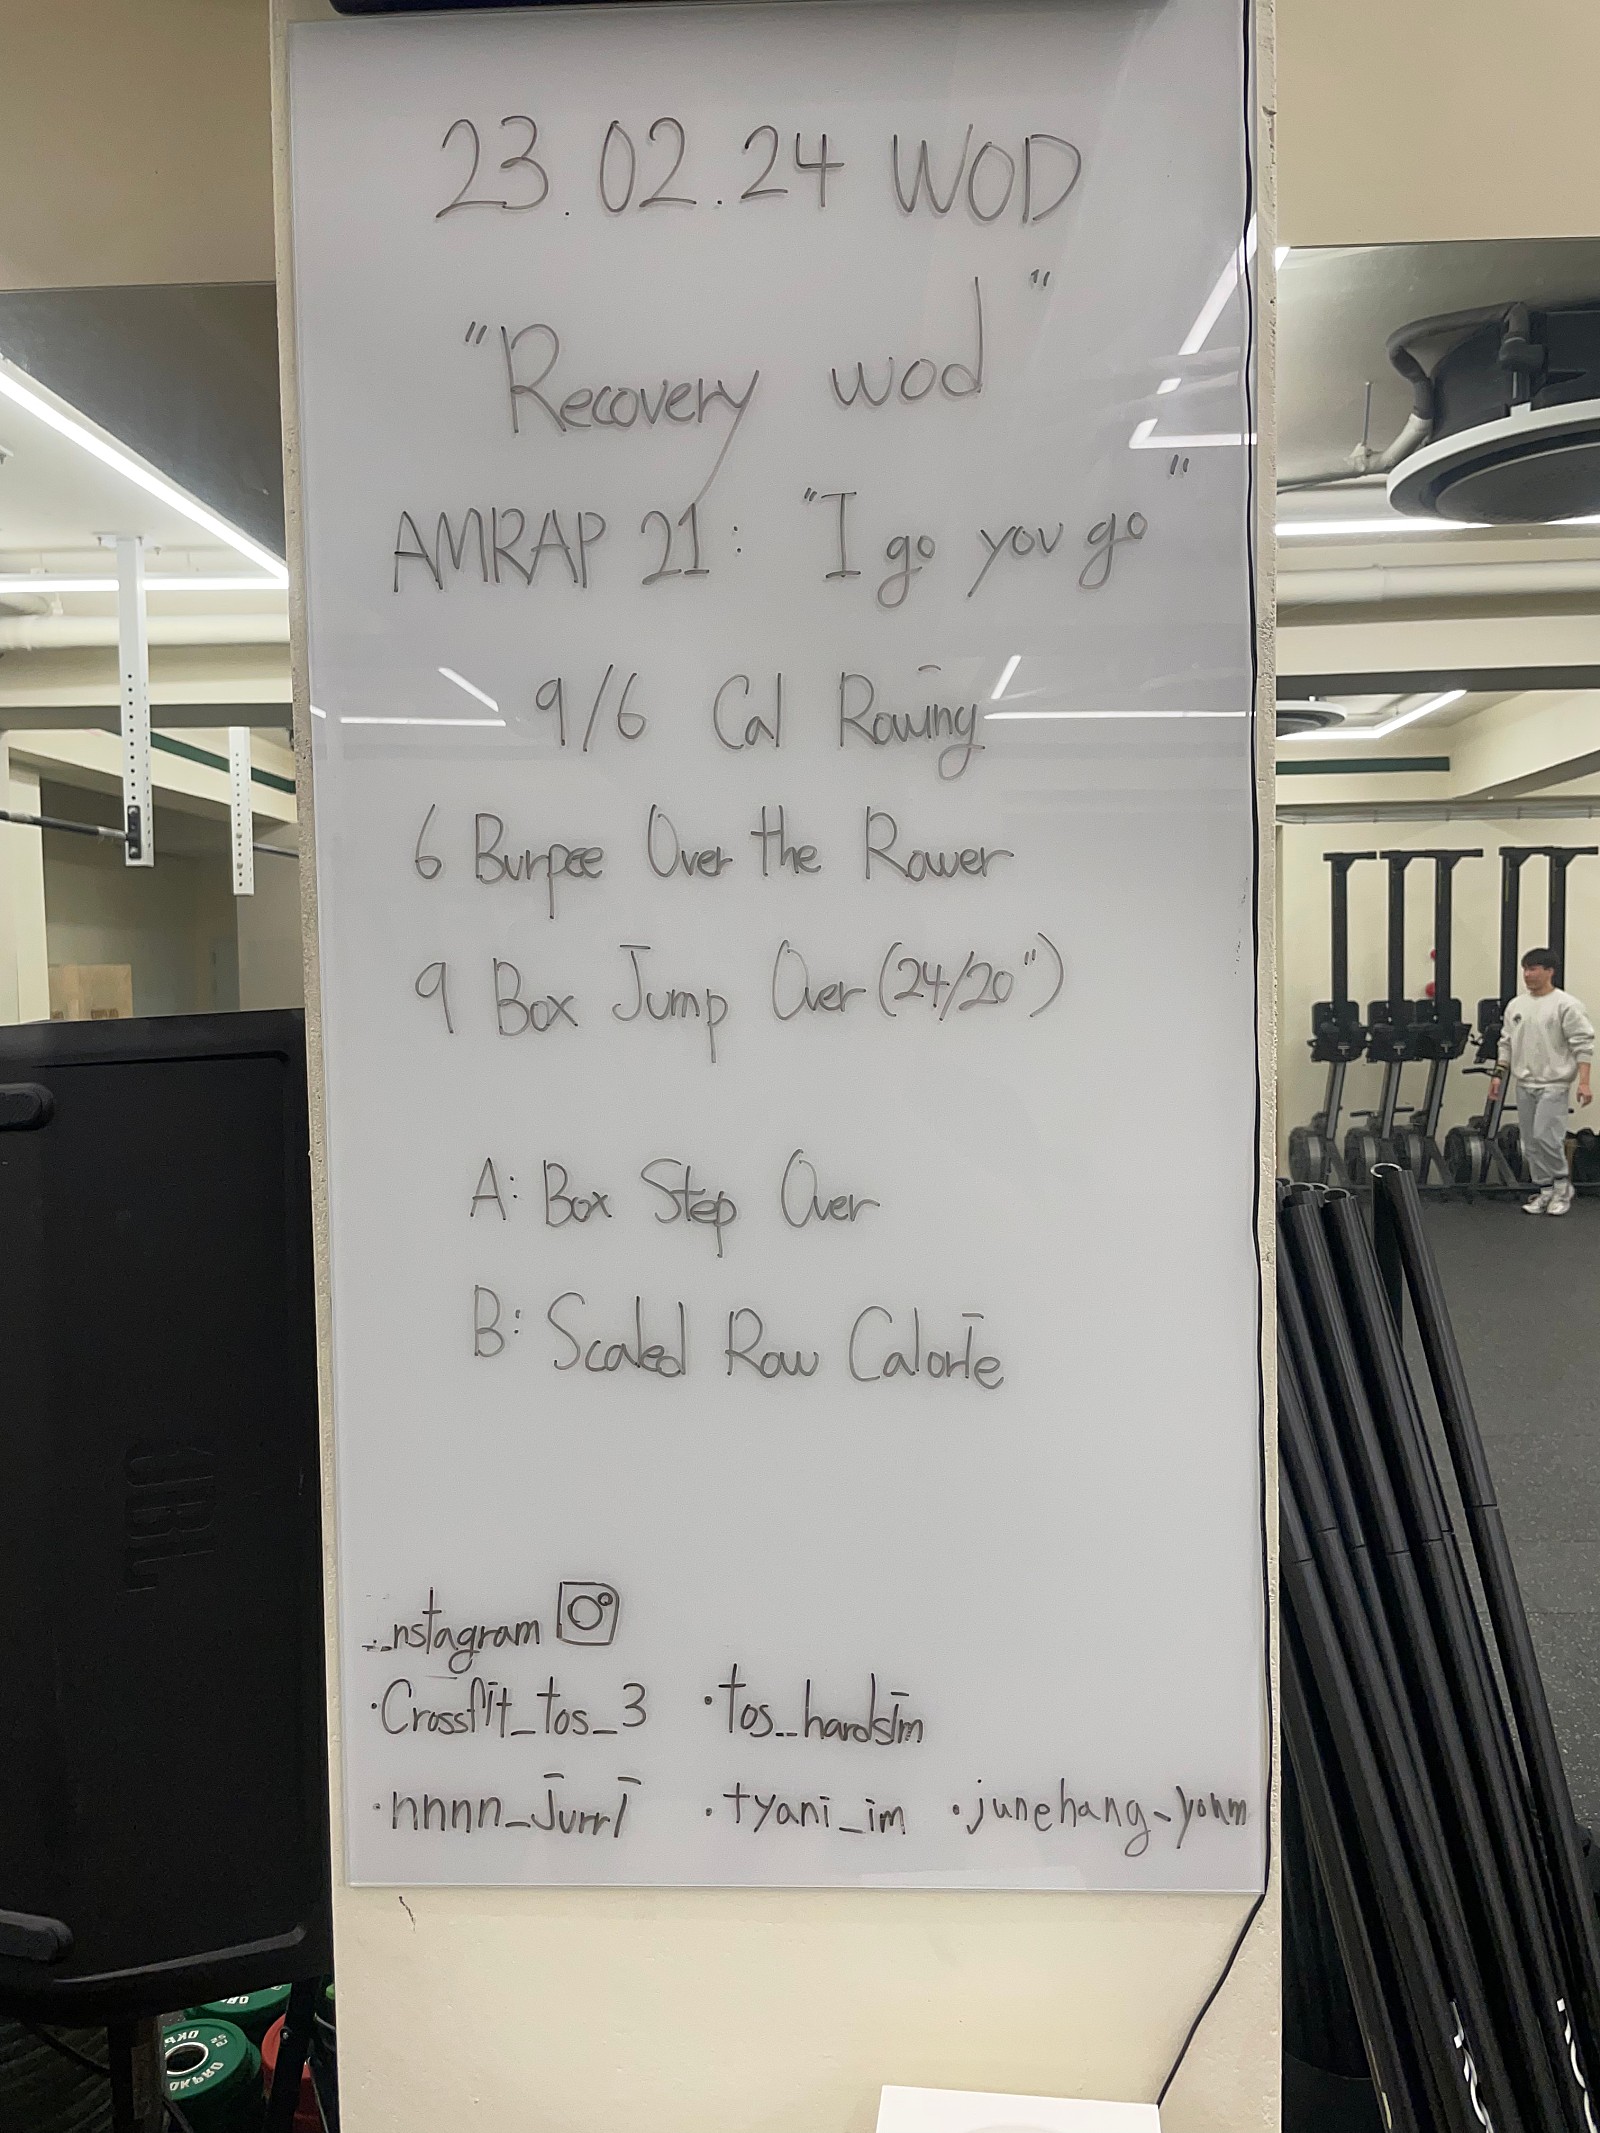 23.02.24 WOD
"Recovery wod"
AMRAP 21: "I go you go"
9/6 Cal Rowing
6 Burpee Over the Rower
9 Box Jump Over (24/20")
A: Box Step Over
B: Scaled Row Calorie
nstagram
·Crossfit_tos_3 ·tos_hardsim
·nnnn_Jurri ·tyani_im ·junehang_youm
JBL
DKPRO